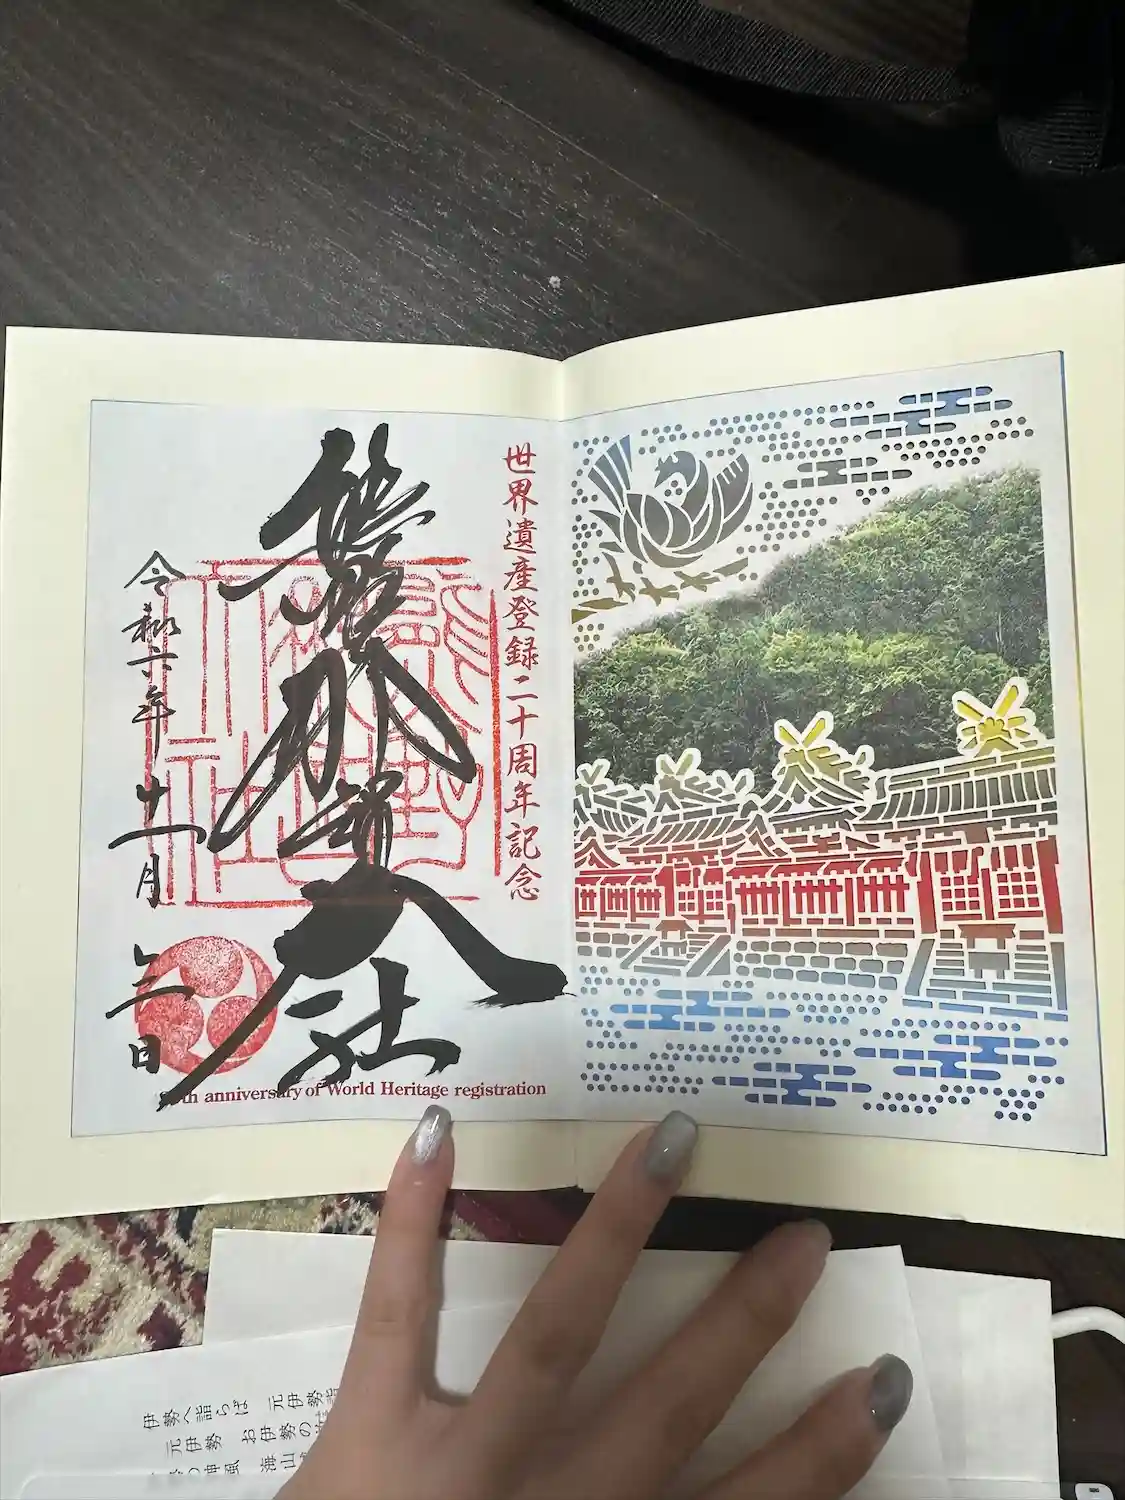 世界遺産登録二十周年記念
熊野那智大社
令和六年十一月二日
th anniversary of World Heritage registration
伊勢へ詣らば 元伊勢詣
元伊勢 お伊勢の
神風 海山